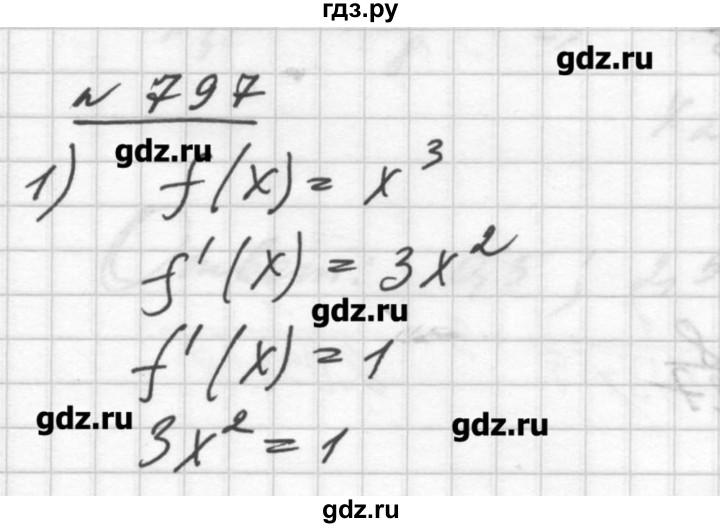 гдз.ру
gdz.ru
№ 797
gdz.ru
1) f(x) = x³
f'(x) = 3x²
gdz.ru
f'(x) = 1
gdz.ru
gdz.ru
3x² = 1
gdz.ru